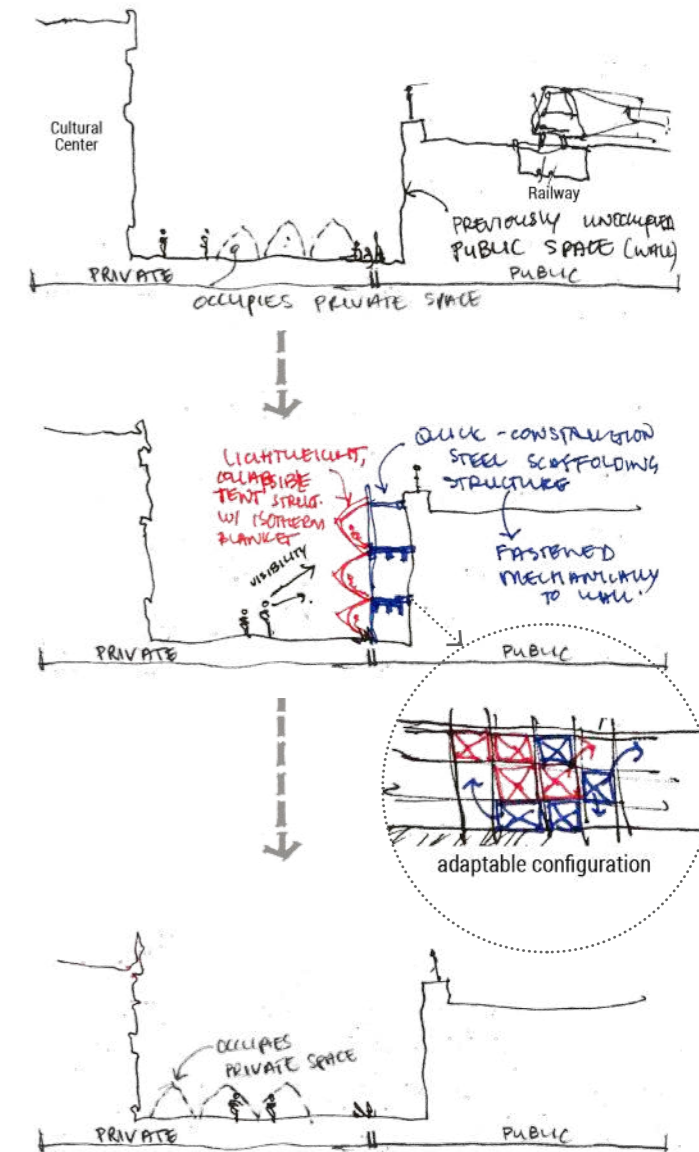 Cultural
Center
Railway
PREVIOUSLY UNOCCUPIED
PUBLIC SPACE (WALL)
PRIVATE
PUBLIC
OCCUPIES PRIVATE SPACE
LIGHTWEIGHT,
COLLAPSIBLE
TENT STRUCT.
W/ ISOTHERM
BLANKET
VISIBILITY
QUICK-CONSTRUCTION
STEEL SCAFFOLDING
STRUCTURE
FASTENED
MECHANICALLY
TO WALL.
PRIVATE
PUBLIC
adaptable configuration
OCCUPIES
PRIVATE SPACE
PRIVATE
PUBLIC